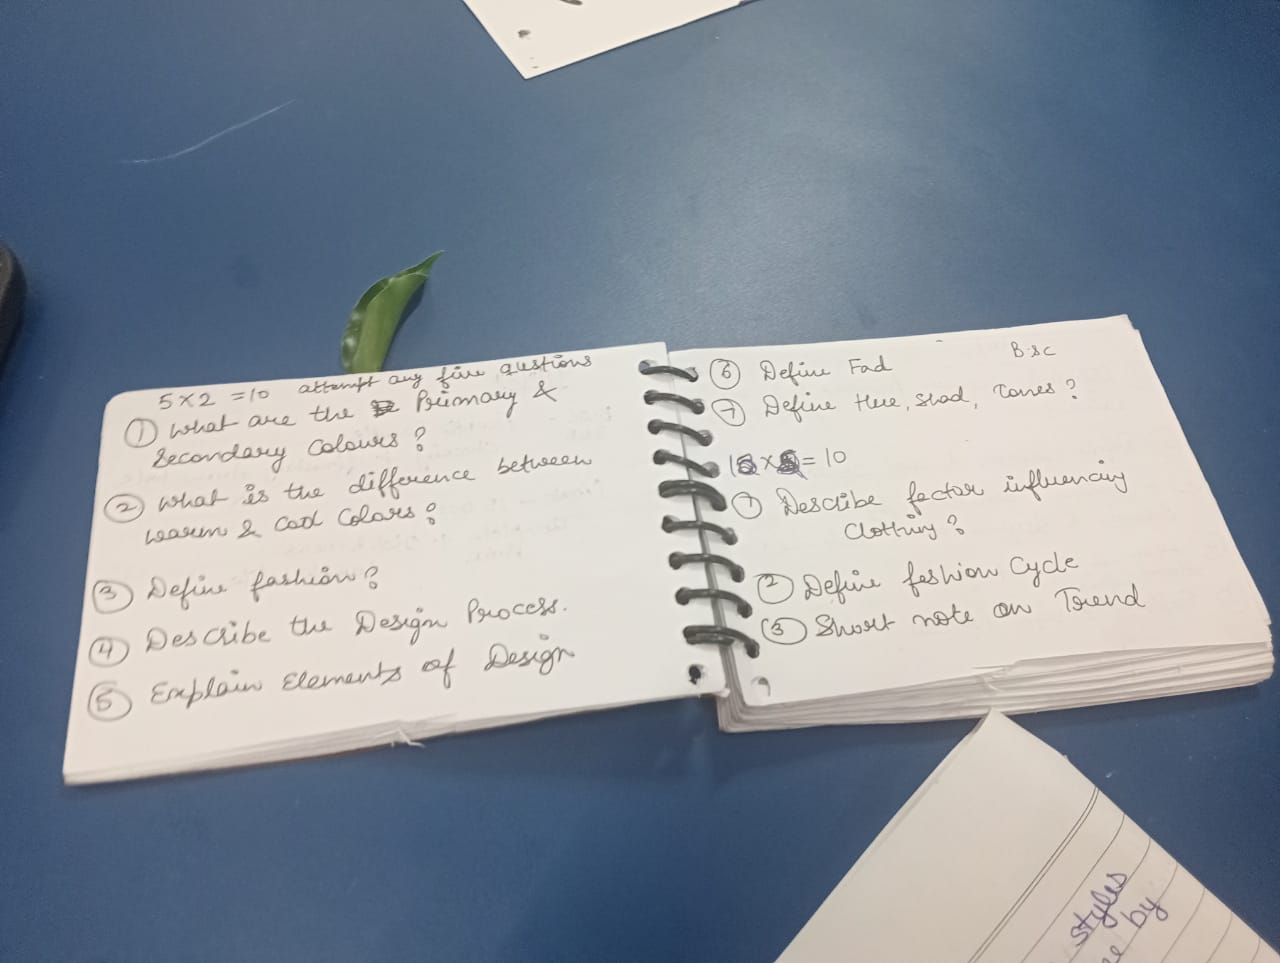 5 x 2 = 10 attempt any five qustions
① What are the Primary &
Secondary Colours?
② What is the difference between
warm & Cool Colors?
③ Define fashion?
④ Describe the Design Process.
⑤ Explain Elements of Design
B.sc
⑥ Define Fad
⑦ Define Hue, Shad, Tones?
= 10
① Describe factor influencing
Clothing?
② Define feshion Cycle
③ Short note on Trend
styles
by